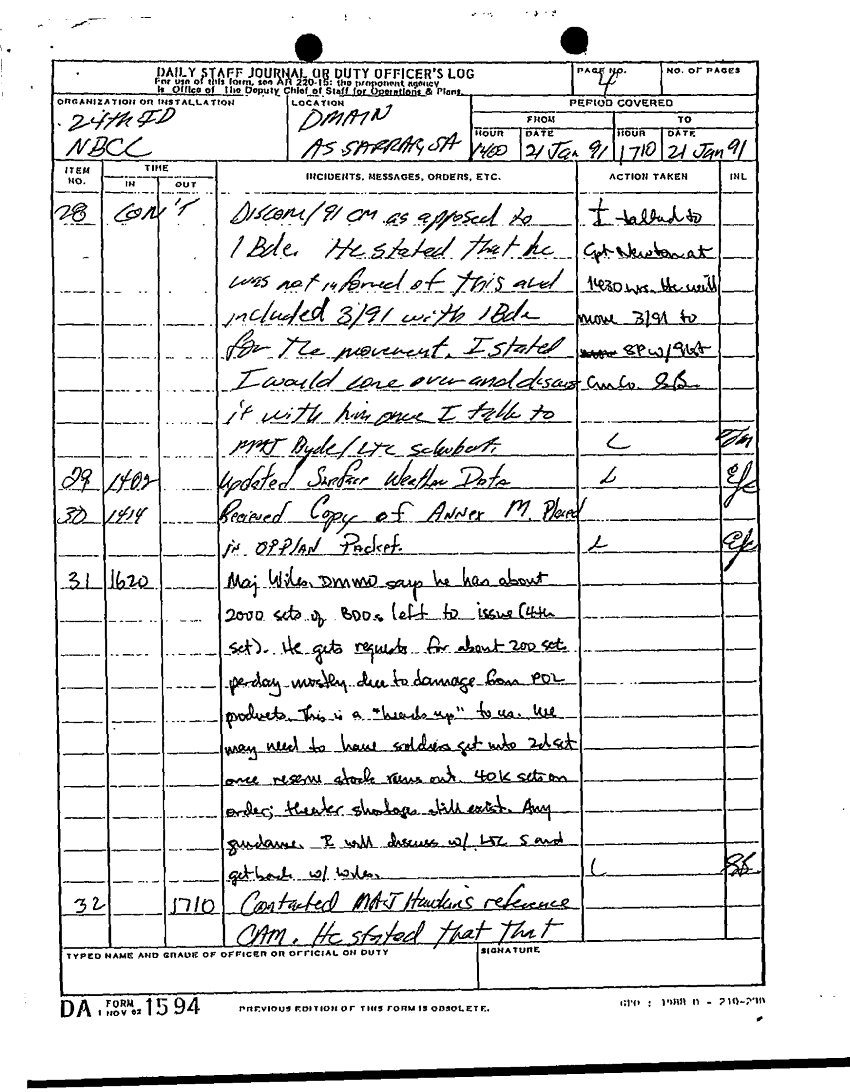 DAILY STAFF JOURNAL OR DUTY OFFICER'S LOG
For use of this form, see AR 220-15; the proponent agency
is Office of The Deputy Chief of Staff for Operations & Plans.
PAGE NO.
4
NO. OF PAGES
ORGANIZATION OR INSTALLATION
24th ID
NBCC
LOCATION
DMAIN
AS SARRAR, SA
PERIOD COVERED
FROM
TO
HOUR DATE HOUR DATE
1400 21 Jan 91 1710 21 Jan 91
ITEM NO.
TIME
IN OUT
INCIDENTS, MESSAGES, ORDERS, ETC.
ACTION TAKEN
INL
28 CON'T Discom/91 CM as apposed to I talked to
1 Bde. He stated that he Cpt Newton at
was not informed of this and 1430 hrs. He will
included 3/91 with 1 Bde move 3/91 to
for the movement. I stated SP w/91st
I would come over and discuss Cm Co.
it with him once I talk to
MAJ Byde/LTC Schubert. L
29 1402 Updated Surface Weather Data L
30 1414 Recieved Copy of Annex M. Placed
in OPPLAN Packet. L
31 1620 Maj Wiles, DMMO says he has about
2000 sets of BDOs left to issue (4th
set). He gets requests for about 200 sets
per day mostly due to damage from POL
products. This is a "heads up" to us. We
may need to have soldiers get into 2d set
once reserve stock runs out. 40K sets on
order; theater shortages still exist. Any
guidance. I will discuss w/ LTC S and
get back w/ Wiles. L
32 1710 Contacted MAJ Hawkins reference
CAM. He stated that that
TYPED NAME AND GRADE OF OFFICER OR OFFICIAL ON DUTY
SIGNATURE
DA FORM 1594
1 NOV 62
PREVIOUS EDITION OF THIS FORM IS OBSOLETE.